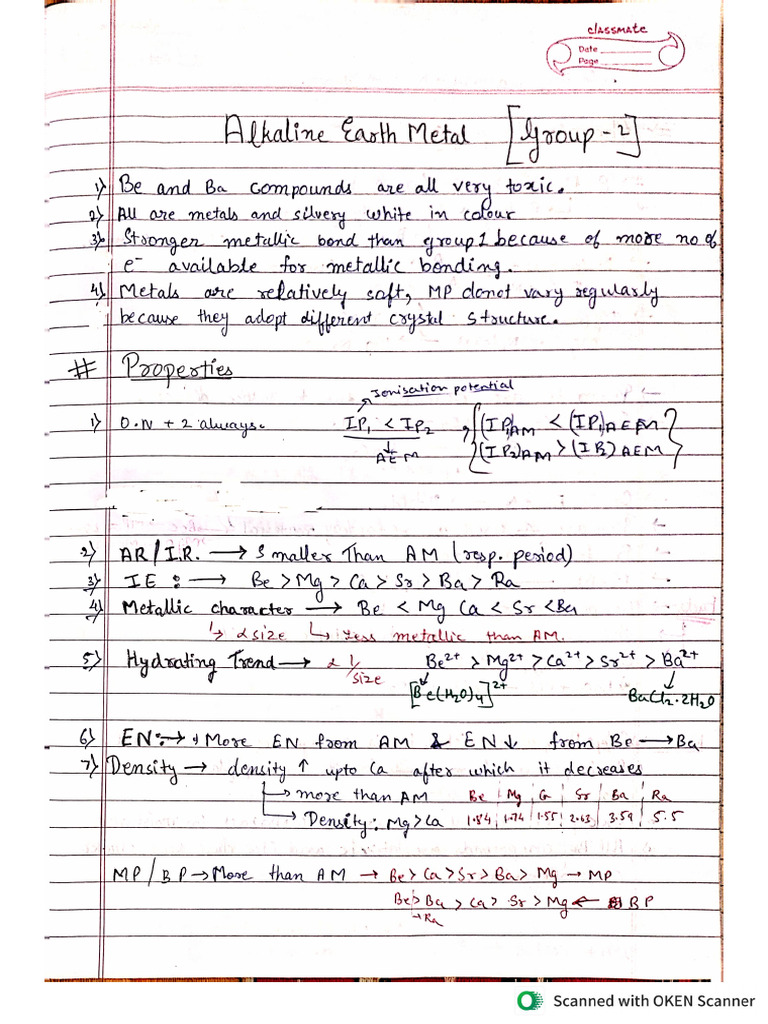 classmate
Date
Page
Alkaline Earth Metal [Group-2]
1) Be and Ba compounds are all very toxic.
2) All are metals and silvery white in colour
3) Stronger metallic bond than group 1 because of more no of
e⁻ available for metallic bonding.
4) Metals are relatively soft, MP donot vary regularly
because they adopt different crystal structure.
# Properties
Ionisation potential
1) O.N + 2 always. IP₁ < IP₂ {(IP₁)AM < (IP₁)AEM
AEM (IP₂)AM > (IP₂)AEM}
2) AR/I.R. → Smaller Than AM (resp. period)
3) IE : → Be > Mg > Ca > Sr > Ba > Ra
4) Metallic character → Be < Mg Ca < Sr < Ba
↳ α size ↳ Less metallic than AM.
5) Hydrating Trend → α 1/size Be²⁺ > Mg²⁺ > Ca²⁺ > Sr²⁺ > Ba²⁺
[Be(H₂O)₄]²⁺ BaCl₂.2H₂O
6) EN:→ More EN from AM & EN↓ from Be → Ba
7) Density → density ↑ upto Ca after which it decreases
↳ more than AM Be | Mg | Ca | Sr | Ba | Ra
↳ Density: Mg > Ca 1.84 | 1.74 | 1.55 | 2.63 | 3.59 | 5.5
MP/BP → More than AM → Be > Ca > Sr > Ba > Mg → MP
Be > Ba > Ca > Sr > Mg ← BP
→ Ra
Scanned with OKEN Scanner